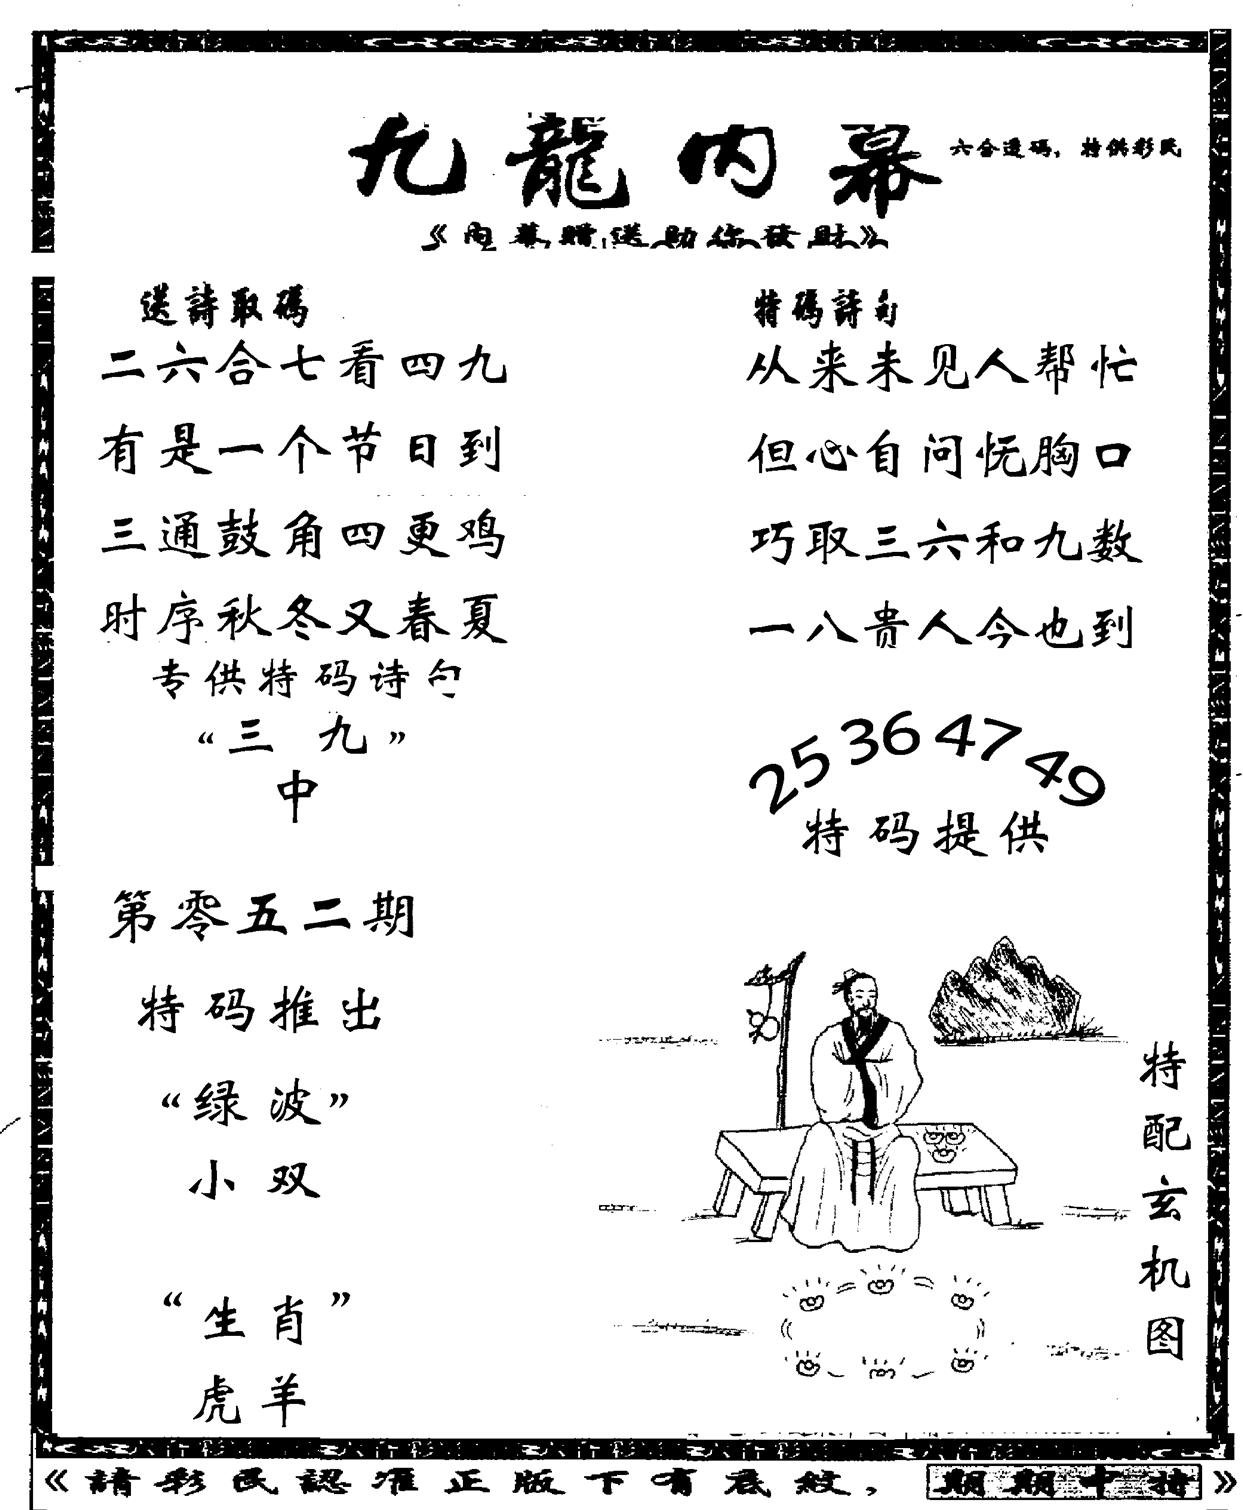 九龍内幕
六合透码，特供彩民
《内幕贈送助你發財》
送詩取碼
二六合七看四九
有是一个节日到
三通鼓角四更鸡
时序秋冬又春夏
专供特码诗句
“三九”
中
第零五二期
特码推出
“绿波”
小双
“生肖”
虎羊
特碼詩句
从来未见人帮忙
但心自问怃胸口
巧取三六和九数
一八贵人今也到
25 36 47 49
特码提供
特配玄机图
《請彩民認准正版下有底紋，期期中特》